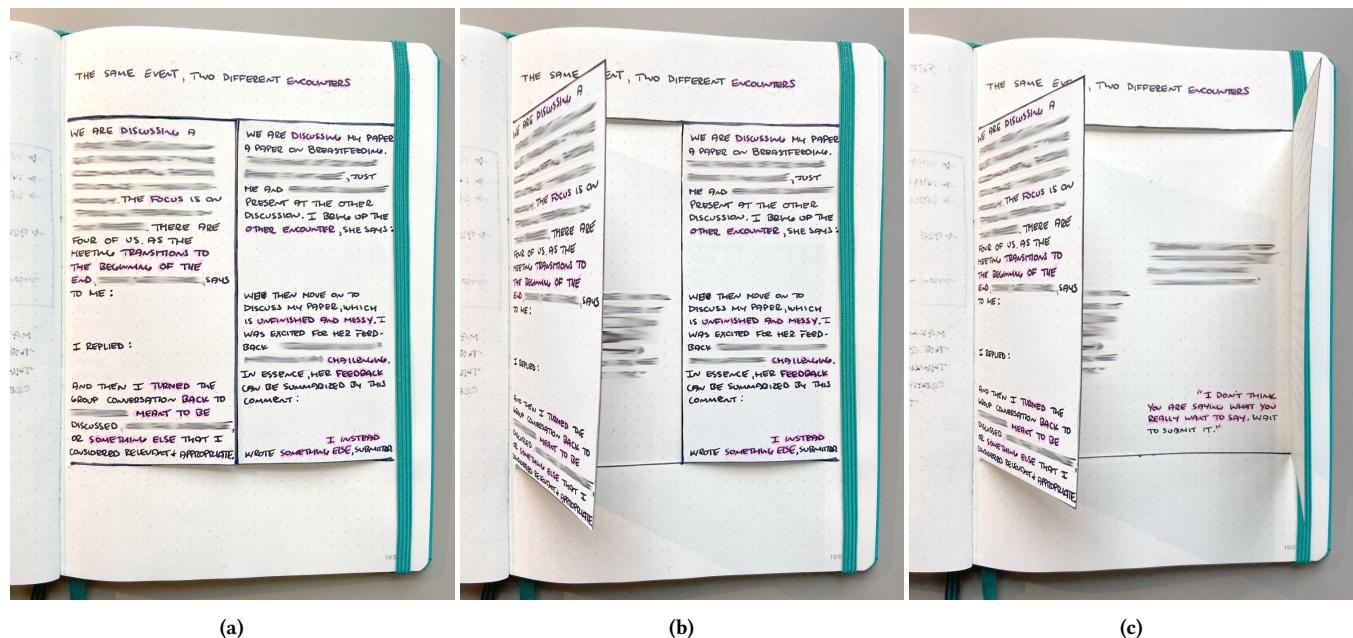 THE SAME EVENT, TWO DIFFERENT ENCOUNTERS
WE ARE DISCUSSING A
. THE FOCUS IS ON
. THERE ARE
FOUR OF US. AS THE
MEETING TRANSITIONS TO
THE BEGINNING OF THE
END, , SAYS
TO ME:
I REPLIED:
AND THEN I TURNED THE
GROUP CONVERSATION BACK TO
MEANT TO BE
DISCUSSED,
OR SOMETHING ELSE THAT I
CONSIDERED RELEVANT & APPROPRIATE.
WE ARE DISCUSSING MY PAPER
A PAPER ON BREASTFEEDING.
, JUST
ME AND
PRESENT AT THE OTHER
DISCUSSION. I BRING UP THE
OTHER ENCOUNTER, SHE SAYS:
WE THEN MOVE ON TO
DISCUSS MY PAPER, WHICH
IS UNFINISHED AND MESSY. I
WAS EXCITED FOR HER FEED-
BACK
CHALLENGING.
IN ESSENCE, HER FEEDBACK
CAN BE SUMMARIZED BY THIS
COMMENT:
I INSTEAD
WROTE SOMETHING ELSE, SUBMITTED
195
(a)
THE SAME ENT, TWO DIFFERENT ENCOUNTERS
WE ARE DISCUSSING A
. THE FOCUS IS ON
. THERE ARE
FOUR OF US. AS THE
MEETING TRANSITIONS TO
THE BEGINNING OF THE
END, , SAYS
TO ME:
I REPLIED:
AND THEN I TURNED THE
GROUP CONVERSATION BACK TO
MEANT TO BE
DISCUSSED,
OR SOMETHING ELSE THAT I
CONSIDERED RELEVANT & APPROPRIATE.
WE ARE DISCUSSING MY PAPER
A PAPER ON BREASTFEEDING.
, JUST
ME AND
PRESENT AT THE OTHER
DISCUSSION. I BRING UP THE
OTHER ENCOUNTER, SHE SAYS:
WE THEN MOVE ON TO
DISCUSS MY PAPER, WHICH
IS UNFINISHED AND MESSY. I
WAS EXCITED FOR HER FEED-
BACK
CHALLENGING.
IN ESSENCE, HER FEEDBACK
CAN BE SUMMARIZED BY THIS
COMMENT:
I INSTEAD
WROTE SOMETHING ELSE, SUBMITTED
195
(b)
THE SAME EVE, TWO DIFFERENT ENCOUNTERS
WE ARE DISCUSSING A
. THE FOCUS IS ON
. THERE ARE
FOUR OF US. AS THE
MEETING TRANSITIONS TO
THE BEGINNING OF THE
END, , SAYS
TO ME:
I REPLIED:
AND THEN I TURNED THE
GROUP CONVERSATION BACK TO
MEANT TO BE
DISCUSSED,
OR SOMETHING ELSE THAT I
CONSIDERED RELEVANT & APPROPRIATE.
"I DON'T THINK
YOU ARE SAYING WHAT YOU
REALLY WANT TO SAY. WAIT
TO SUBMIT IT."
195
(c)